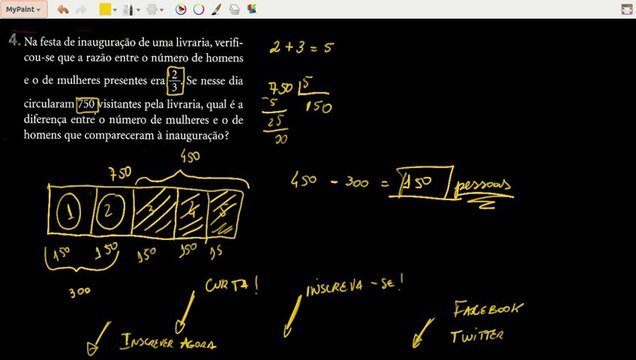 MyPaint
4. Na festa de inauguração de uma livraria, verifi-
cou-se que a razão entre o número de homens
e o de mulheres presentes era 2/3. Se nesse dia
circularam 750 visitantes pela livraria, qual é a
diferença entre o número de mulheres e o de
homens que compareceram à inauguração?
2 + 3 = 5
750 5
-5 150
25
00
450
750
450 - 300 = 150 pessoas
1 2 3 4 5
150 150 150 150 15
300
CURTA!
INSCREVA-SE!
INSCREVER AGORA
FACEBOOK
TWITTER